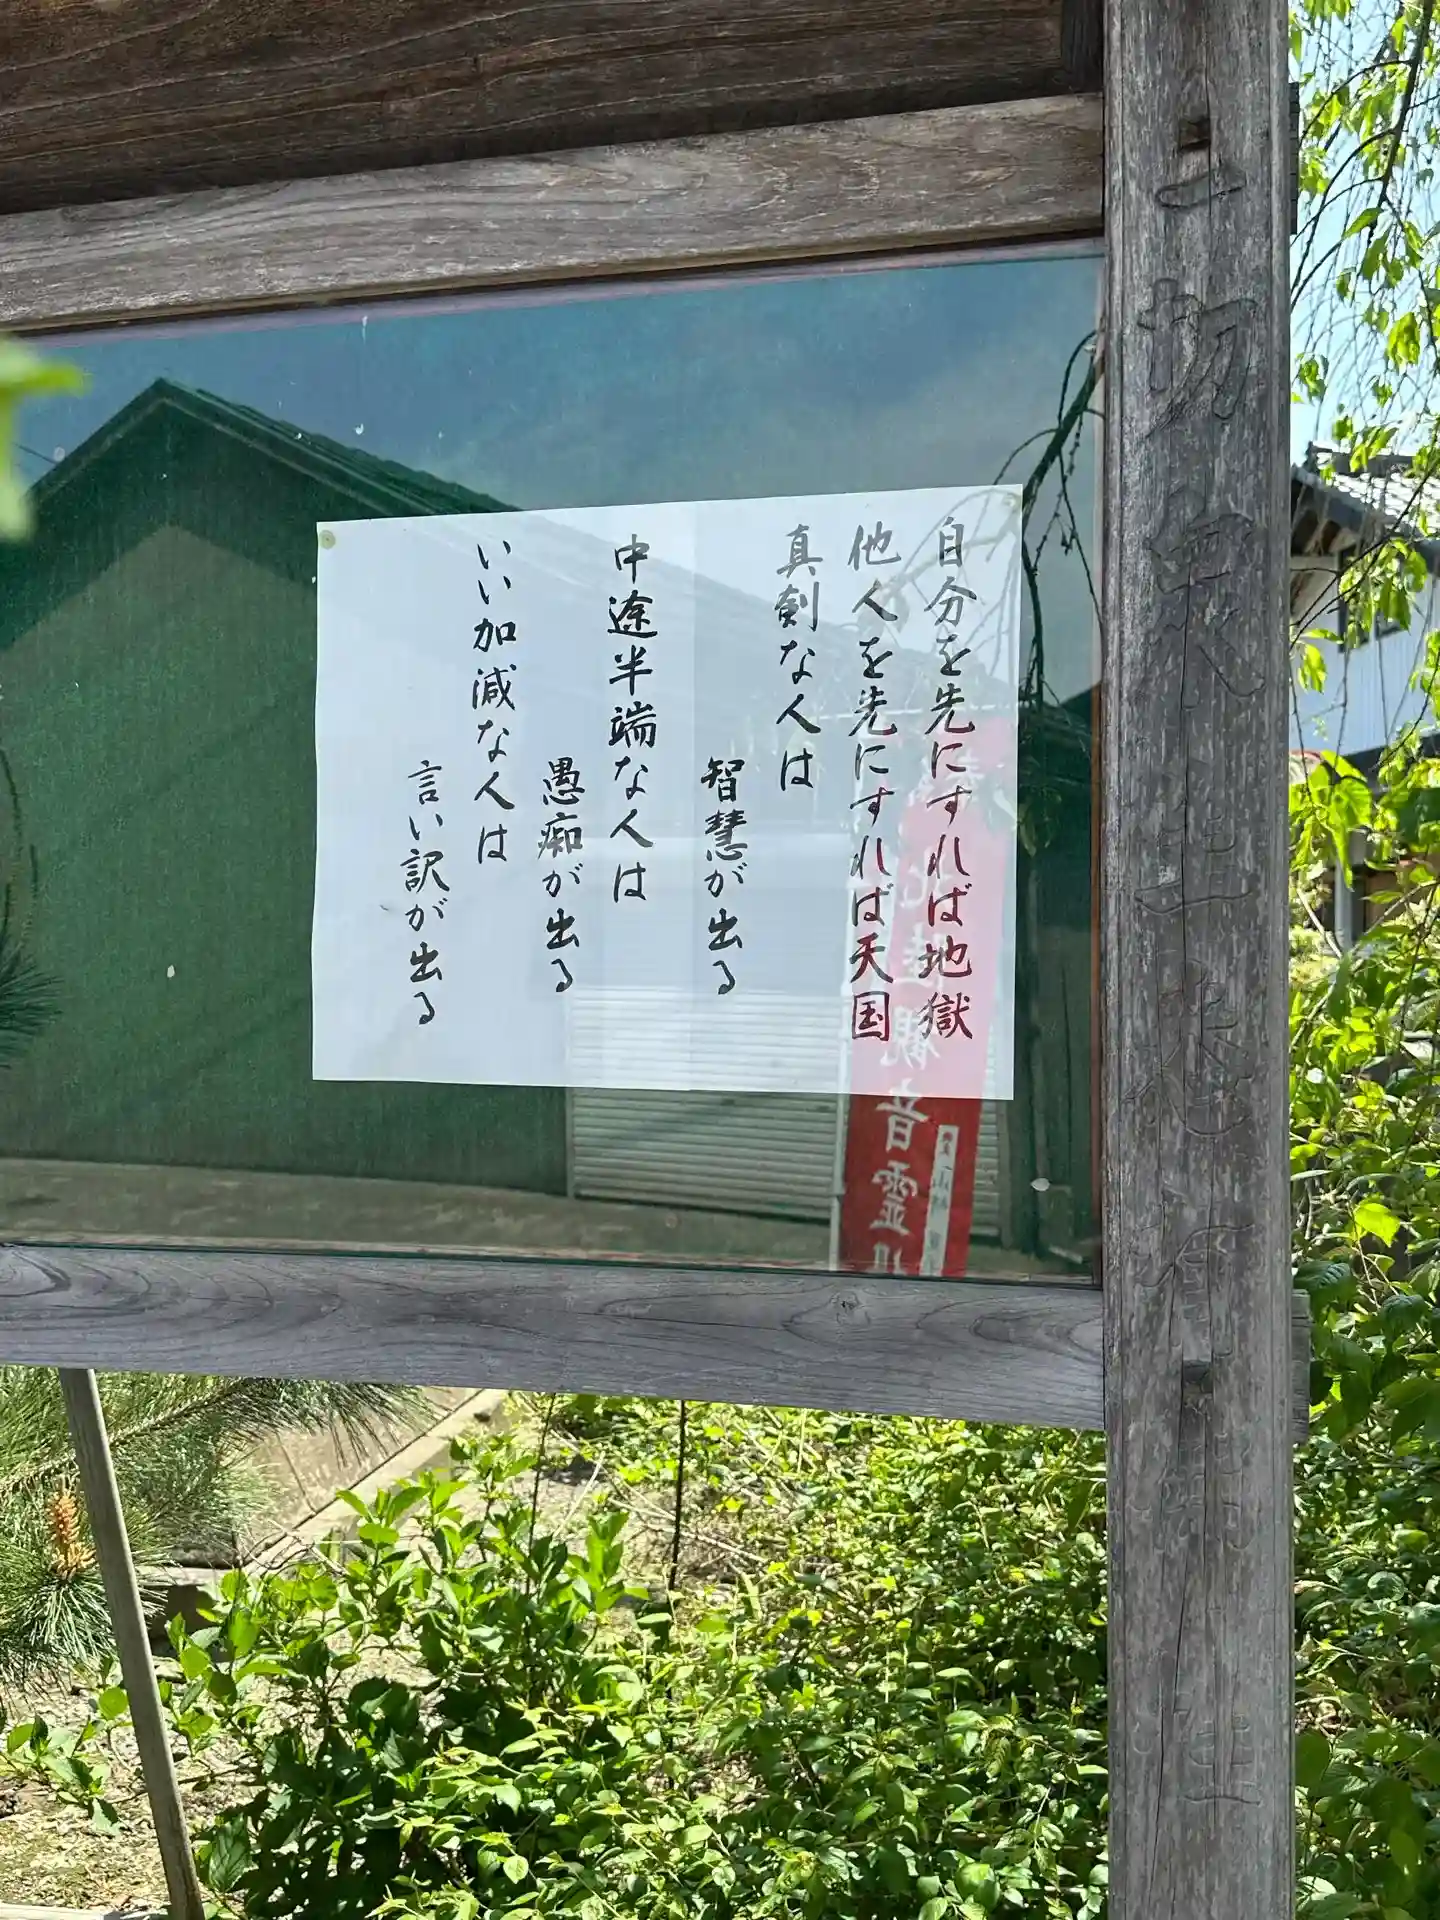 一切衆生
自分を先にすれば地獄
他人を先にすれば天国
真剣な人は
智慧が出る
中途半端な人は
愚痴が出る
いい加減な人は
言い訳が出る
観音霊